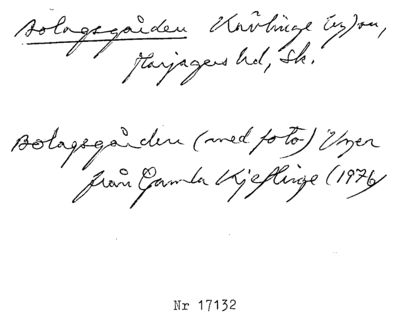 Bolagsgården Kävlinge
Harjagers hd, Sk.
Bolagsgården (med foto)
från Gamla Kjeflinge (1976)
Nr 17132